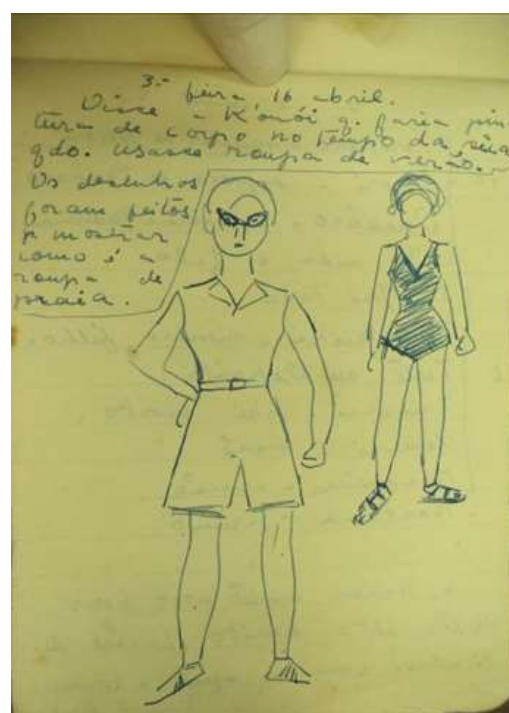 3.ª feira 16 abril.
Disse a K'onói q. faria pin
tura de corpo no tempo da sêca
qdo. usasse roupa de verão.
Os desenhos
foram feitos
p mostrar
como é a
roupa de
praia.